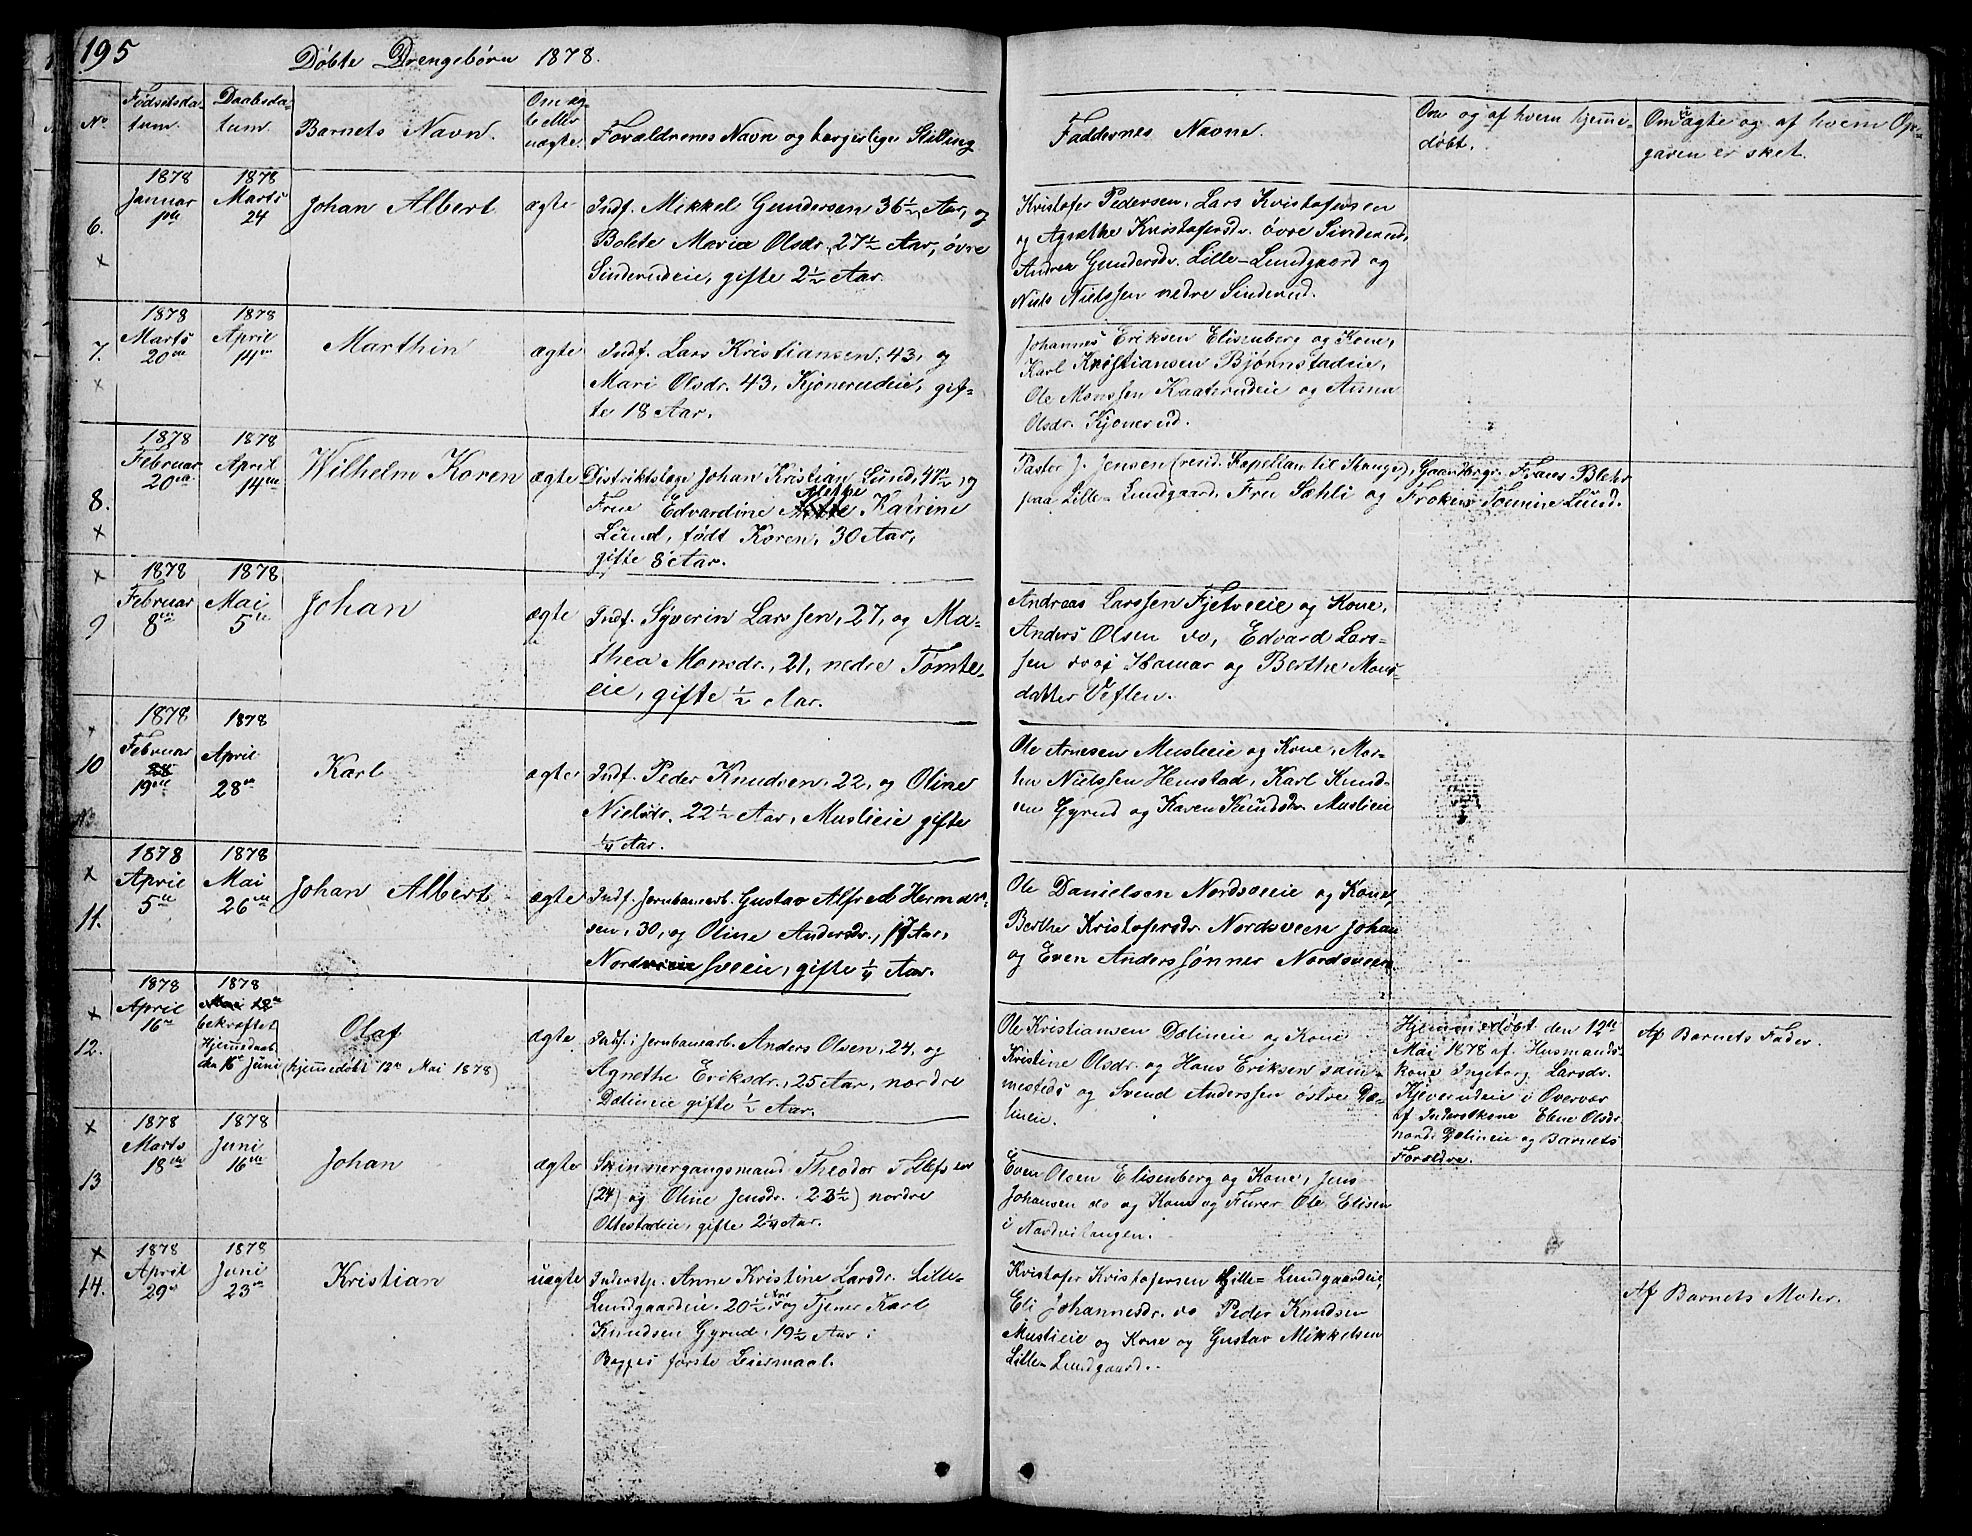 195
Døbte Drengebørn 1878.
No
Fødselsda-
tum.
Daabsda-
tum.
Barnets Navn.
Om æg-
te eller
uægte.
Forældrenes Navn og borgerlige Stilling
Faddernes Navne.
Om og af hvem hjemme-
døbt.
Om uægte og af hvem Op-
gaven er sket.
6.
×
1878
Januar
1878
Marts
24
Johan Albert
ægte
Indf. Mikkel Gundersen 36½ Aar, og
Bolete Maria Olsdr. 27½ Aar, øvre
Sinderudeie, gifte 2½ Aar.
Kristofer Pedersen, Lars Kristofersen
og Agnethe Kristofersdr. øvre Sinderud,
Andrea Gundersdr. Lille-Lundgaard og
Niels Nielssen nedre Sinderud.
7.
×
1878
Marts
20de
1878
April
14de
Marthin
ægte
Indf. Lars Kristiansen, 43, og
Mari Olsdr. 43, Kjonerudeie, gif-
te 18 Aar.
Johannes Eriksen Elisenberg og Kone,
Karl Kristiansen Bjørnstadeie,
Ole Monssen Kaaterudeie og Anna
Olsdr. Kjonerud.
8.
×
1878
Februar
20de
1878
April
14de
Wilhelm Koren
ægte
Distriktslæge Johan Kristian Lund, 41½, og
Frue Edvardine Mathe Katrine
Lund, født Koren, 30 Aar,
gifte 8 Aar.
Pastor J. Jensen (resid. Kapellan til Stange), Gaardbrgr. Frans Blehr
paa Lille-Lundgaard, Fru Sæhli og Frøken Tomine Lund.
×
9
1878
Februar
8de
1878
Mai
5te
Johan
ægte
Indf. Syverin Larssen, 27, og Ma-
thea Monsdr., 21, nedre Tømte-
eie, gifte ½ Aar.
Andreas Larssen Fjetveeie og Kone,
Anders Olsen do, Edvard Lars-
sen do i Hamar og Berthe Mons-
datter Veflen.
×
10
1878
Februar
19de
1878
April
28de
Karl
ægte
Indf. Peder Knudsen, 22, og Oline
Nielsdr. 22½ Aar, Muslieie gifte
¼ Aar.
Ole Arnesen Muslieie og Kone, Mar-
tin Nielssen Hemstad, Karl Knud-
sen Gyrud og Karen Knudsdr. Muslieie
×
11.
1878
April
5te
1878
Mai
26de
Johan Albert
ægte
Indf. Jernbanearb. Gustav Alfred Herman-
sen, 30, og Oline Andersdr., 17 Aar,
Nordsveeie, gifte ¼ Aar.
Ole Danielsen Nordsveeie og Kone,
Berthe Kristofersdr. Nordsveen Johan
og Even Anderssønner Nordsveen.
×
12.
1878
April
16de
1878
Mai 12te
bekræftet
Hjemmedaab
den 16de Juni
Olaf
(hjemmedøbt 12te Mai 1878)
ægte
Indf. i Jernbanearb. Anders Olsen, 24, og
Agnethe Eriksdr., 25 Aar, nordre
Dælineie gifte ½ Aar.
Ole Kristiansen Dælineie og Kone
Kristine Olsdr. og Hans Eriksen sam-
mesteds og Svend Anderssen østre Dæ-
lineie.
Hjemmedøbt den 12te
Mai 1878 af Husmands-
kone Ingeborg Larsdr.
Kjeverudeie i Overvær
af Inderstkone Eline Olsdr.
nord. Dælineie og Barnets
Forældre.
Af Barnets Fader.
×
13
1878
Marts
18de
1878
Juni
16de
Johan
ægte
Skinnergangsmand Theodor Tollefsen
(24) og Oline Jensdr. 23½) nordre
Ottestadeie, gifte 2¼ Aar.
Even Olsen Elisenberg og Kone, Jens
Johansen do og Kone og Furer Ole Elisen
i Nordvitangen.
×
14.
1878
April
29de
1878
Juni
23de
Kristian
uægte
Inderstp. Anne Kristine Larsdr. Lille-
Lundgaardeie, 20½ Aar og Tjener Karl
Knudsen Gyrud, 19½ Aar.
Begges første Leiermaal.
Kristofer Kristofersen Lille-Lundgaardeie,
Eli Johannesdr. do Peder Knudsen
Muslieie og Kone og Gustav Mikkelsen
Lille-Lundgaard.
Af Barnets Moder.